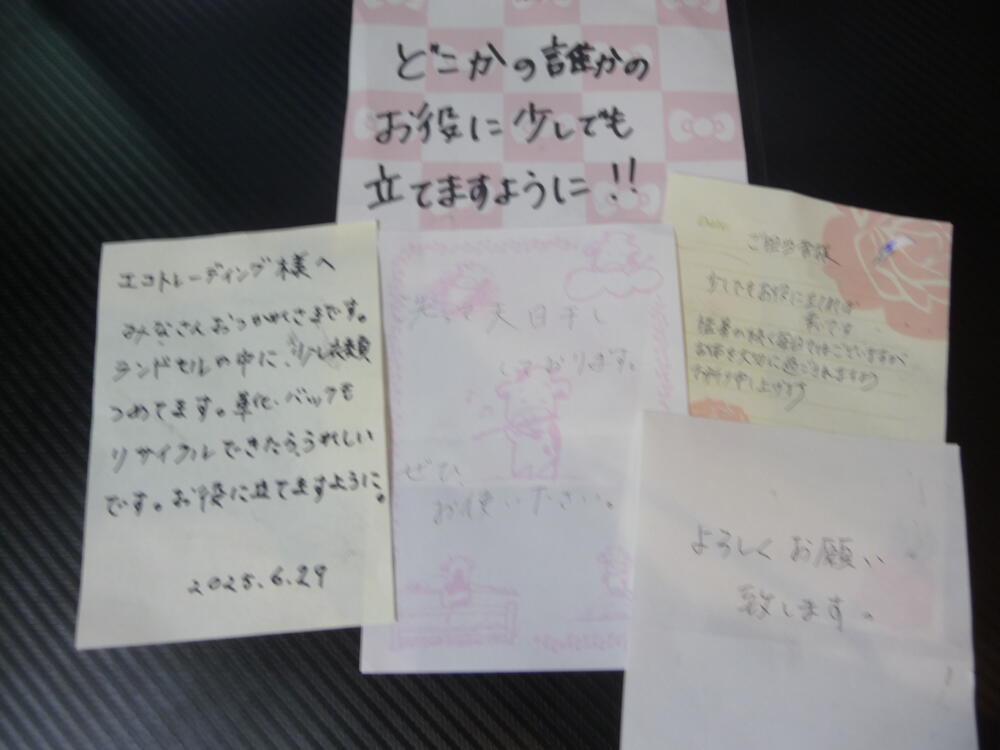 どこかの誰かの
お役に少しでも
立てますように!!
エコトレーディング様へ
みなさんおつかれさまです。
ランドセルの中に、少し衣類
つめてます。革化、バックも
リサイクルできたらうれしい
です。お役に立てますように。
2025.6.29
洗って天日干し
しております。
ぜひ、
お使いださい。
Date
ご担当者様
少しでもお役に立てれば
幸です
猛暑の続く毎日ではございますが
お体を大切に過ごされますよう
お祈り申し上げます
よろしくお願い
致します。